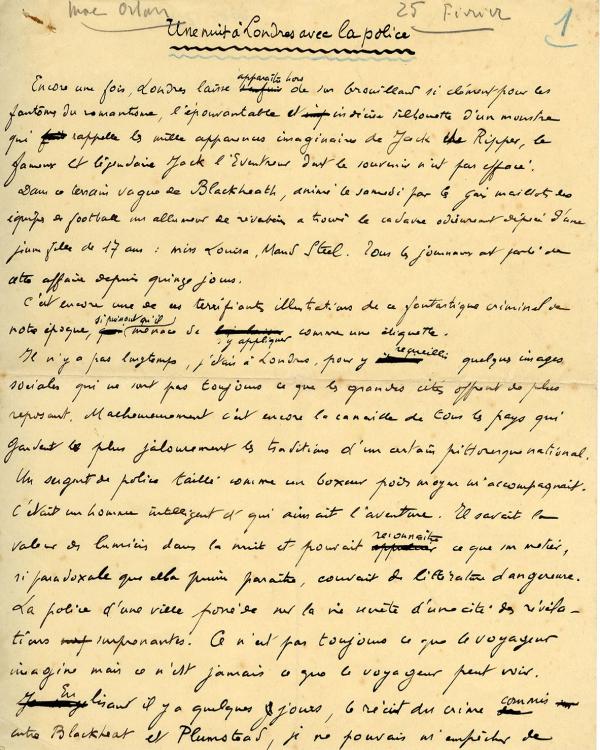 Mac Orlan 25 Février 1
Une nuit à Londres avec la police
Encore une fois, Londres laisse apparaître hors de son brouillard si clément pour les
fantômes du romantisme, l'épouvantable et indécise silhouette d'un monstre
qui rappelle les mille apparences imaginaires de Jack the Ripper, le
fameux et légendaire Jack l'Eventreur dont le souvenir n'est pas effacé.
Dans ce terrain vague de Blackheath, animé le samedi par les gais maillots des
équipes de football un allumeur de réverbère a trouvé le cadavre odieusement dépecé d'une
jeune fille de 17 ans : miss Louisa, Maud Steel. Tous les journaux ont parlé de
cette affaire depuis quinze jours.
C'est encore une de ces terrifiantes illustrations de ce fantastique criminel de
notre époque, si présent qu'il menace de s'y appliquer comme une étiquette.
Il n'y a pas longtemps, j'étais à Londres, pour y recueillir quelques images
sociales qui ne sont pas toujours ce que les grandes cités offrent de plus
reposant. Malheureusement c'est encore la canaille de tous les pays qui
gardent le plus jalousement les traditions d'un certain pittoresque national.
Un sergent de police taillé comme un boxeur poids moyen m'accompagnait.
C'était un homme intelligent et qui aimait l'aventure. Il savait la
valeur des lumières dans la nuit et pouvait reconnaître ce que son métier,
si paradoxale que cela puisse paraître, couvait de littérature dangereuse.
La police d'une ville possède sur la vie secrète d'une cité des révéla-
tions surprenantes. Ce n'est pas toujours ce que le voyageur
imagine mais ce n'est jamais ce que le voyageur peut voir.
En lisant il y a quelques jours, le récit du crime commis
entre Blackheat et Plumstead, je ne pouvais m'empêcher de